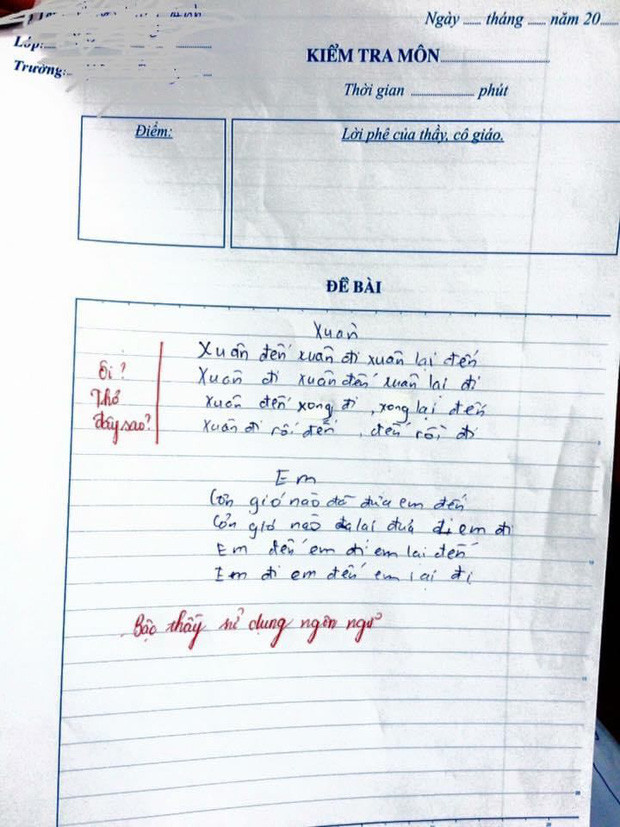 Ngày ..... tháng ..... năm 20.....
Lớp:
KIỂM TRA MÔN
Trường:
Thời gian ............ phút
Điểm:
Lời phê của thầy, cô giáo.
ĐỀ BÀI
Xuân
Xuân đến xuân đi xuân lại đến
Xuân đi xuân đến xuân lại đi
Xuân đến xong đi, xong lại đến
Xuân đi rồi đến, đến rồi đi
Ôi?
Thơ
đây sao?
Em
Cơn gió nào đã đưa em đến
Cơn gió nào lại đưa em đi
Em đến em đi em lại đến
Em đi em đến em lại đi
Bạo thầy sử dụng ngôn ngữ